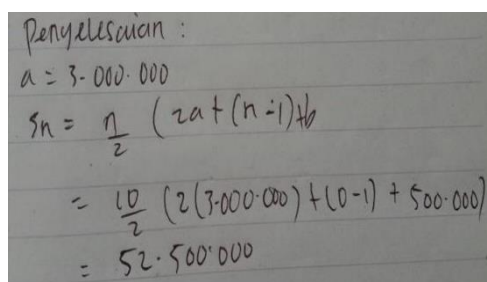 Penyelesaian :
a = 3.000.000
Sn = n/2 (2a + (n-1)+b
= 10/2 (2(3.000.000) + (0-1) + 500.000)
= 52.500.000